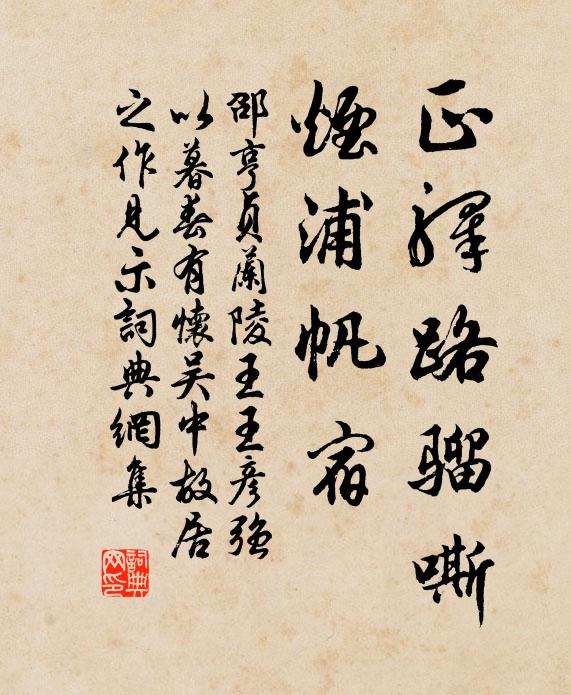 正驛路騮嘶
煙浦帆宿
邵亨貞蘭陵王王彥強
以暮春有懷吳中故居
之作見示詞典網集
詞典
网印